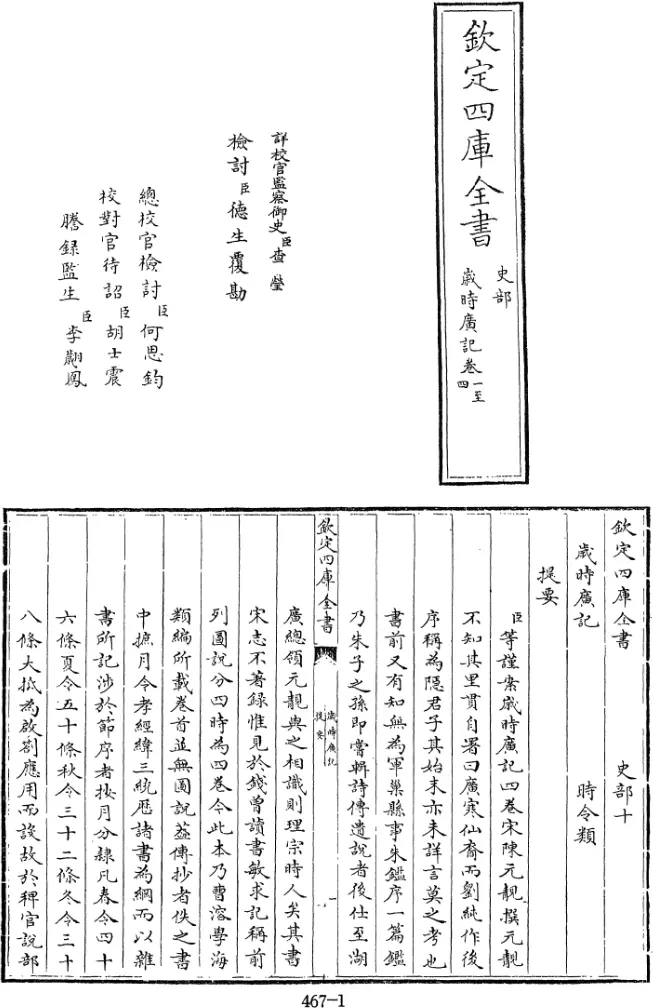 欽定四庫全書
史部
歲時廣記卷一至四
詳校官監察御史臣查瑩
檢討臣德生覆勘
總校官檢討臣何思鈞
校對官待詔臣胡士震
謄録監生臣李翽鳳
欽定四庫全書 史部十
歲時廣記 時令類
提要
臣等謹案歲時廣記四卷宋陳元靚撰元靚
不知其里貫自署曰廣寒仙裔而劉純作後
序稱為隠君子其始末亦未詳言莫之考也
書前又有知無為軍巢縣事朱鑑序一篇鑑
乃朱子之孫即嘗輯詩傳遺說者後仕至湖
欽定四庫全書
歲時廣記
提要
一
廣總領元靚與之相識則理宗時人矣其書
宋志不著録惟見於錢曽讀書敏求記稱前
列圖說分四時為四卷今此本乃曹溶學海
類編所載卷首並無圖說葢傳抄者佚之書
中摭月令孝經緯三統歴諸書為綱而以雜
書所記涉於節序者按月分隸凡春令四十
六條夏令五十條秋令三十二條冬令三十
八條大抵為啟劄應用而設故於稗官說部
467-1